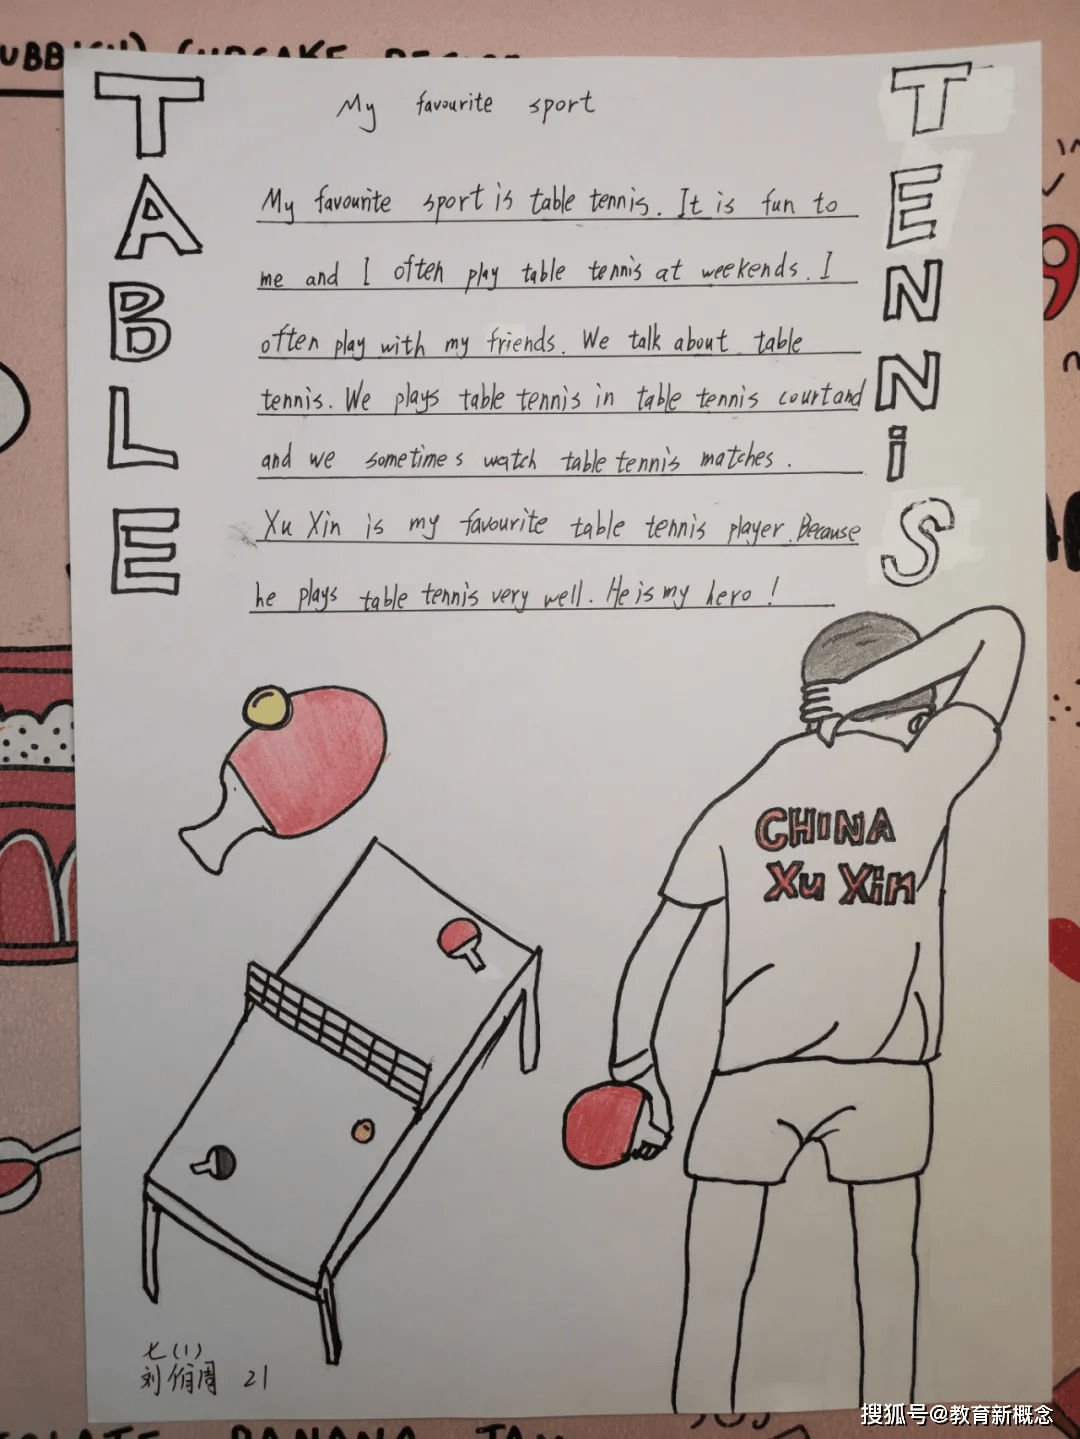 TABLE
TENNiS
My favourite sport
My favourite sport is table tennis. It is fun to
me and I often play table tennis at weekends. I
often play with my friends. We talk about table
tennis. We plays table tennis in table tennis courtand
and we sometimes watch table tennis matches.
Xu Xin is my favourite table tennis player. Because
he plays table tennis very well. He is my hero!
CHINA
Xu Xin
七(1)
刘 周 21
搜狐号@教育新概念